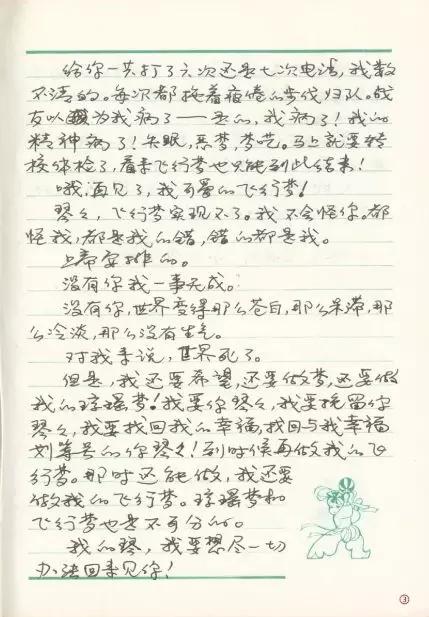 给你一共打了六次还是七次电话，我数
不清的。每次都拖着疲倦的步伐归队。战
友以为我病了——是的，我病了！我的
精神病了！失眠，恶梦，梦呓。马上就要转
校体检了，看来飞行梦也只能到此结束！
哦，再见了，我可爱的飞行梦！
琴々，飞行梦实现不了。我不会怪你。都
怪我，都是我的错，错的都是我。
上帝安排的。
没有你我一事无成。
没有你，世界变得那么苍白，那么呆滞，那
么冷淡，那么没有生气。
对我来说，世界死了。
但是，我还要希望，还要做梦，还要做
我的梦！我要你琴々，我要挽留你
琴々，我要找回我的幸福，找回与我幸福
划等号的你琴々！到时候再做我的飞
行梦。那时还能做，我还要
做我的飞行梦。梦和
飞行梦也是不可分的。
我的琴，我要想尽一切
办法回来见你！
③